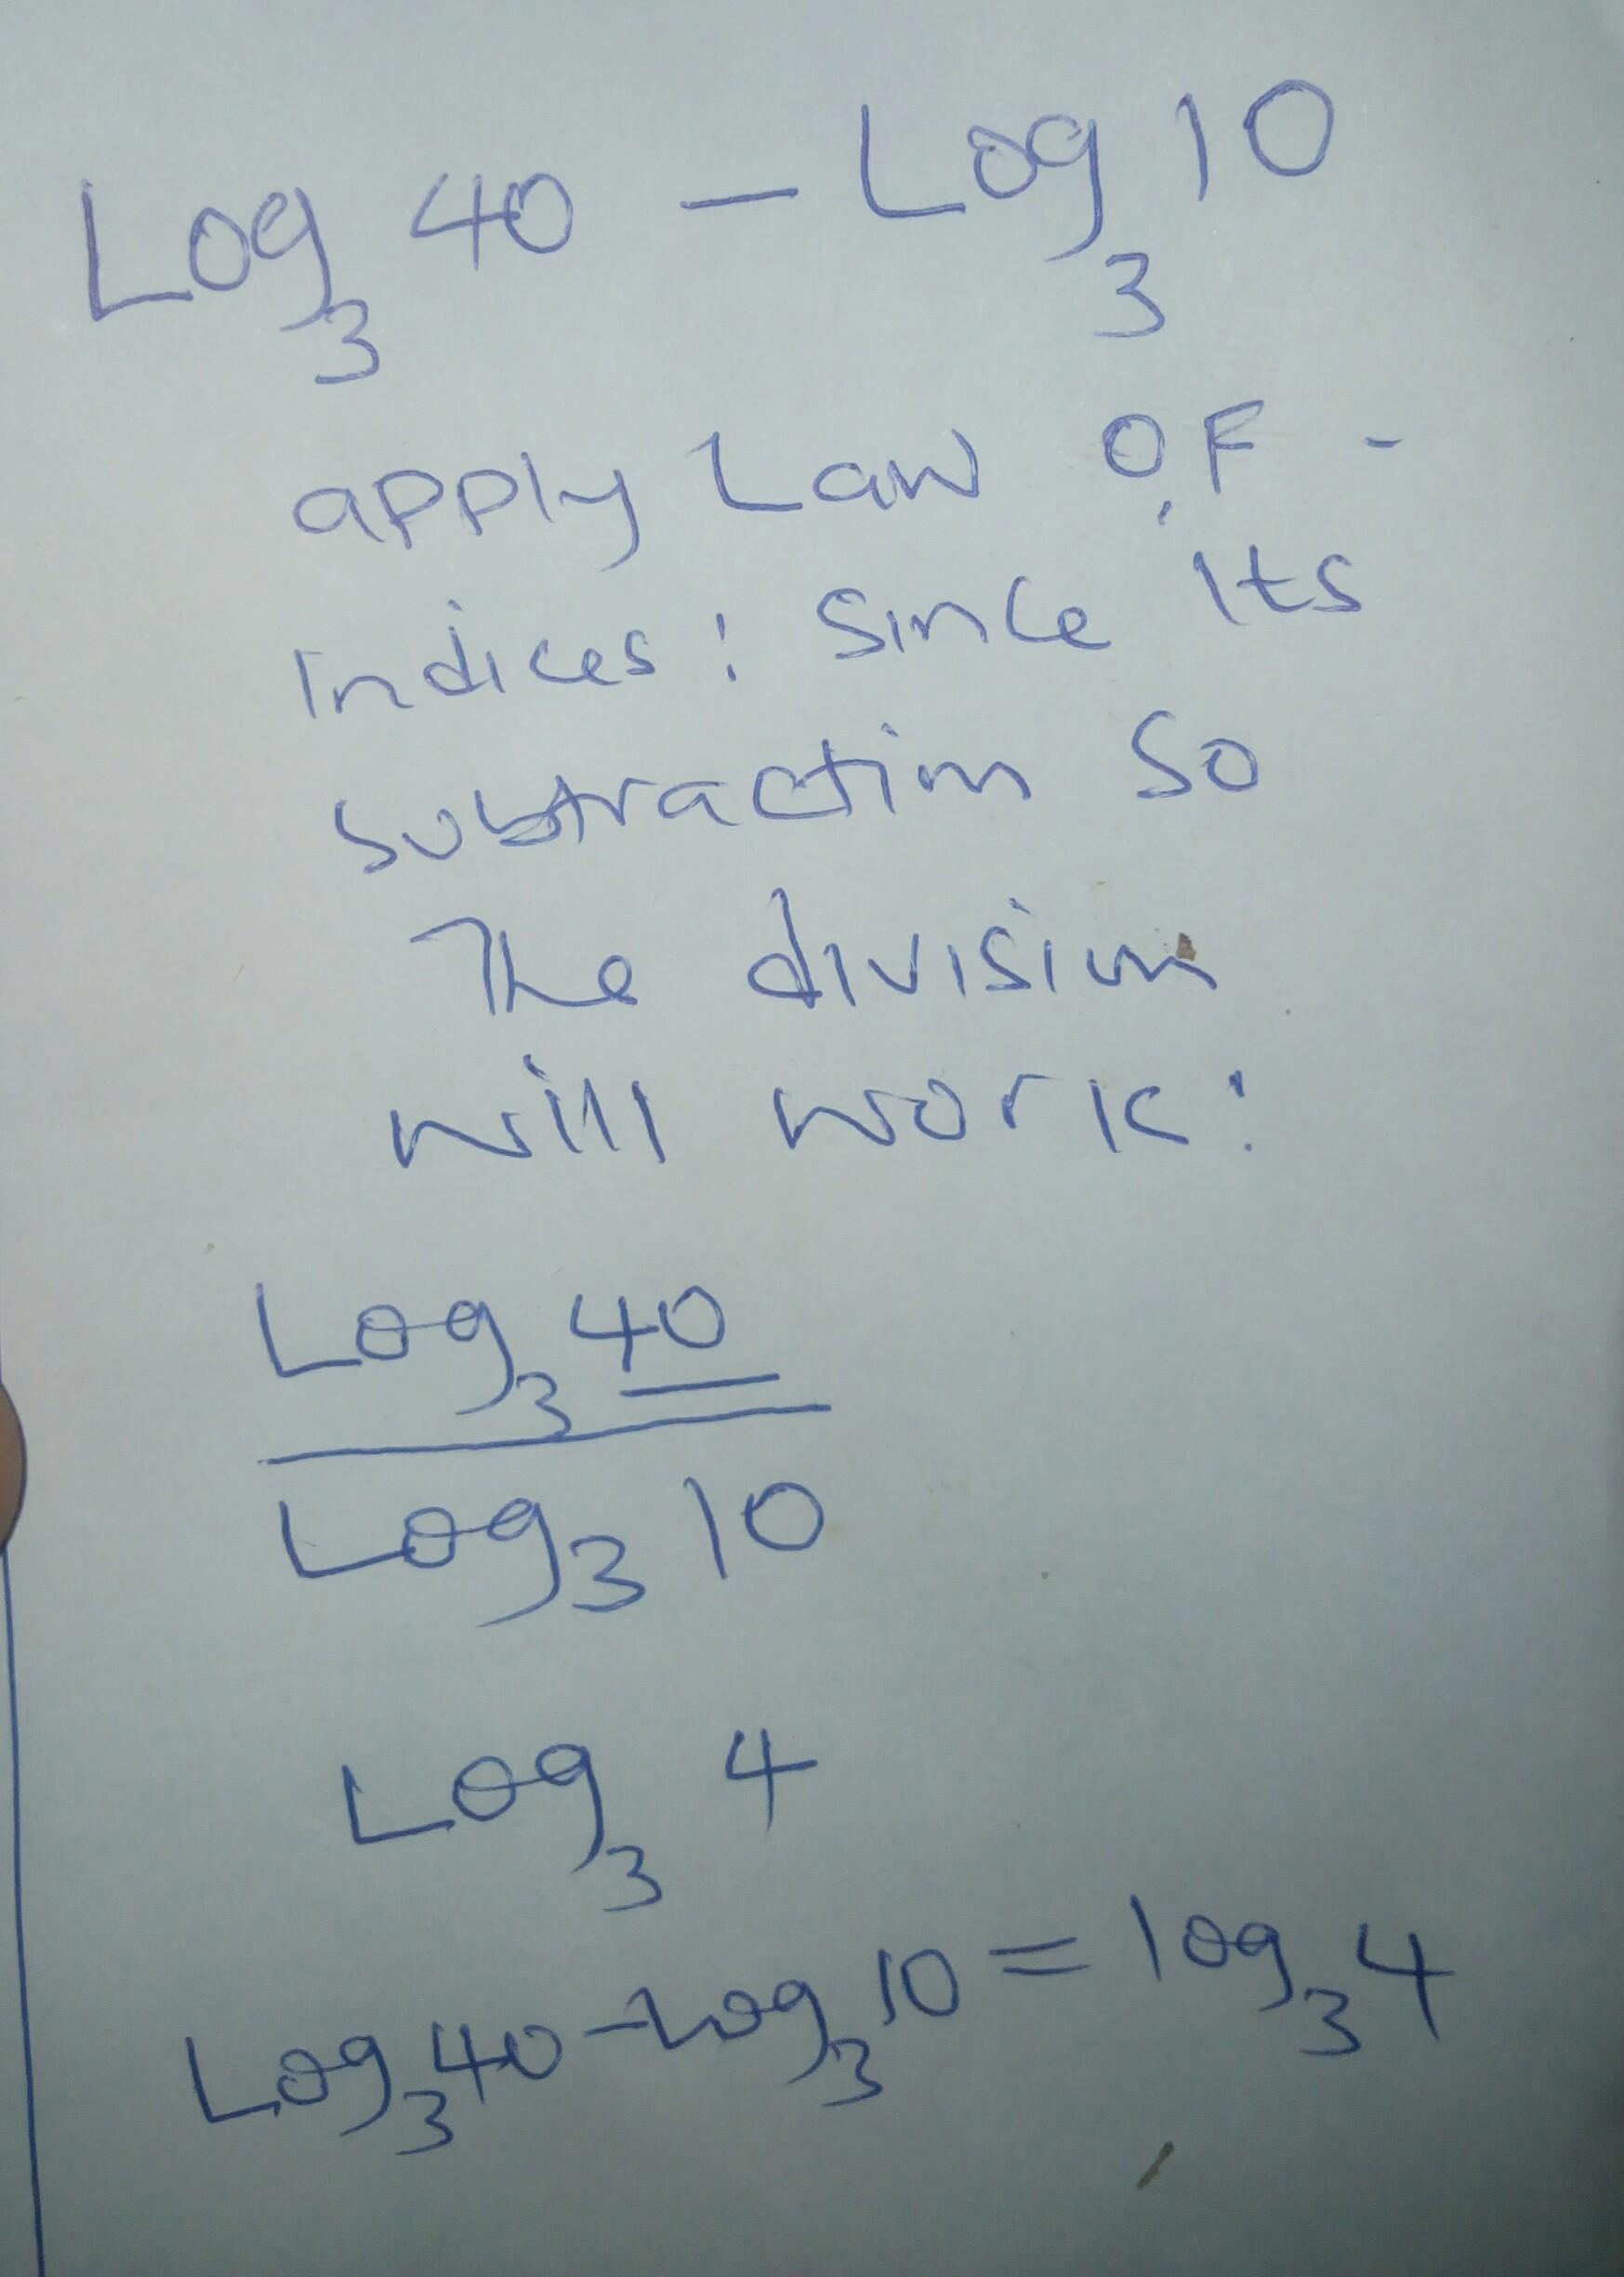 Log₃ 40 - Log₃ 10
apply Law OF -
Indices: Since Its
subtraction So
The division
will work:
Log₃ 40
Log₃ 10
Log₃ 4
Log₃ 40 - Log₃ 10 = log₃ 4